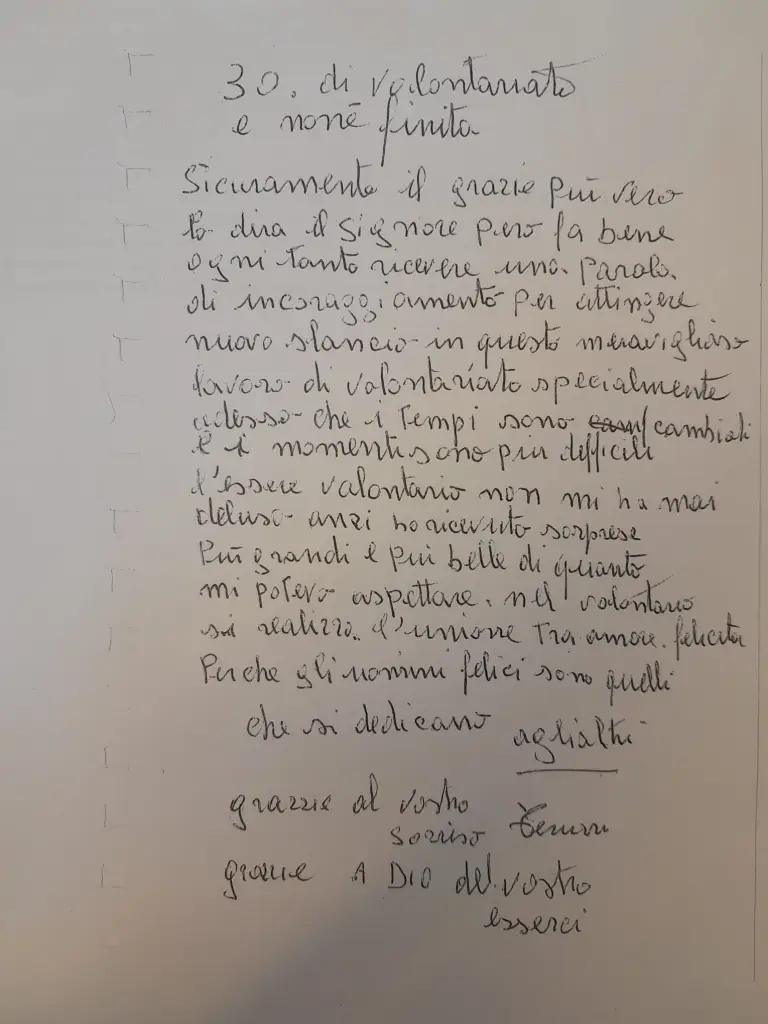 30. di volontariato
e non é finita
Sicuramente il grazie più vero
lo dira il Signore pero fa bene
ogni tanto ricevere una parola
di incoraggiamento per attingere
nuovo slancio in questo meraviglioso
lavoro di volontariato specialmente
adesso che i tempi sono cambiati
e i momenti sono piu difficili
l'essere valontario non mi ha mai
deluso anzi ho ricevuto sorprese
Più grandi e piu belle di quanto
mi potevo aspettare. nel volontario
si realizza l'unione Tra amore. felicita
Perche gli uomini felici sono quelli
che si dedicano aglialtri
grazzie al vostro
sorriso
grazie A DIO del vostro
esserci